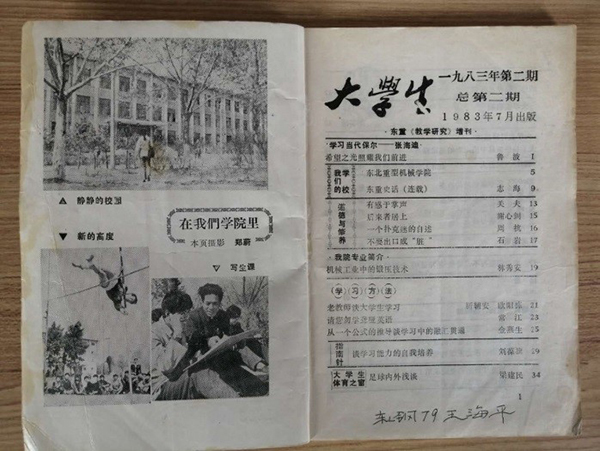 静静的校园
新的高度
在我們学院里
本页摄影 郑蔚
写生课
大学生
一九八三年第二期
总第二期
1983年7月出版
·东重《教学研究》增刊·
·学习当代保尔——张海迪·
希望之光照耀我们前进 鲁波 1
我们的学校
东北重型机械学院 5
东重史话(连载) 志海 9
道德与修养
有感于掌声 关夫 13
后来者居上 15
一个扑克迷的自述 周桃 16
不要出口成“脏” 石岩 17
·我院专业简介·
机械工业中的锻压技术 林秀安 19
(学)(习)(方)(法)
老教师谈大学生学习 21
23
从一个公式的推导谈学习中的融汇贯通 金恩生 25
指南针
谈学习能力的自我培养 29
大学生体育之窗
足球内外浅谈 梁建民 34
1
轧钢79 王海平